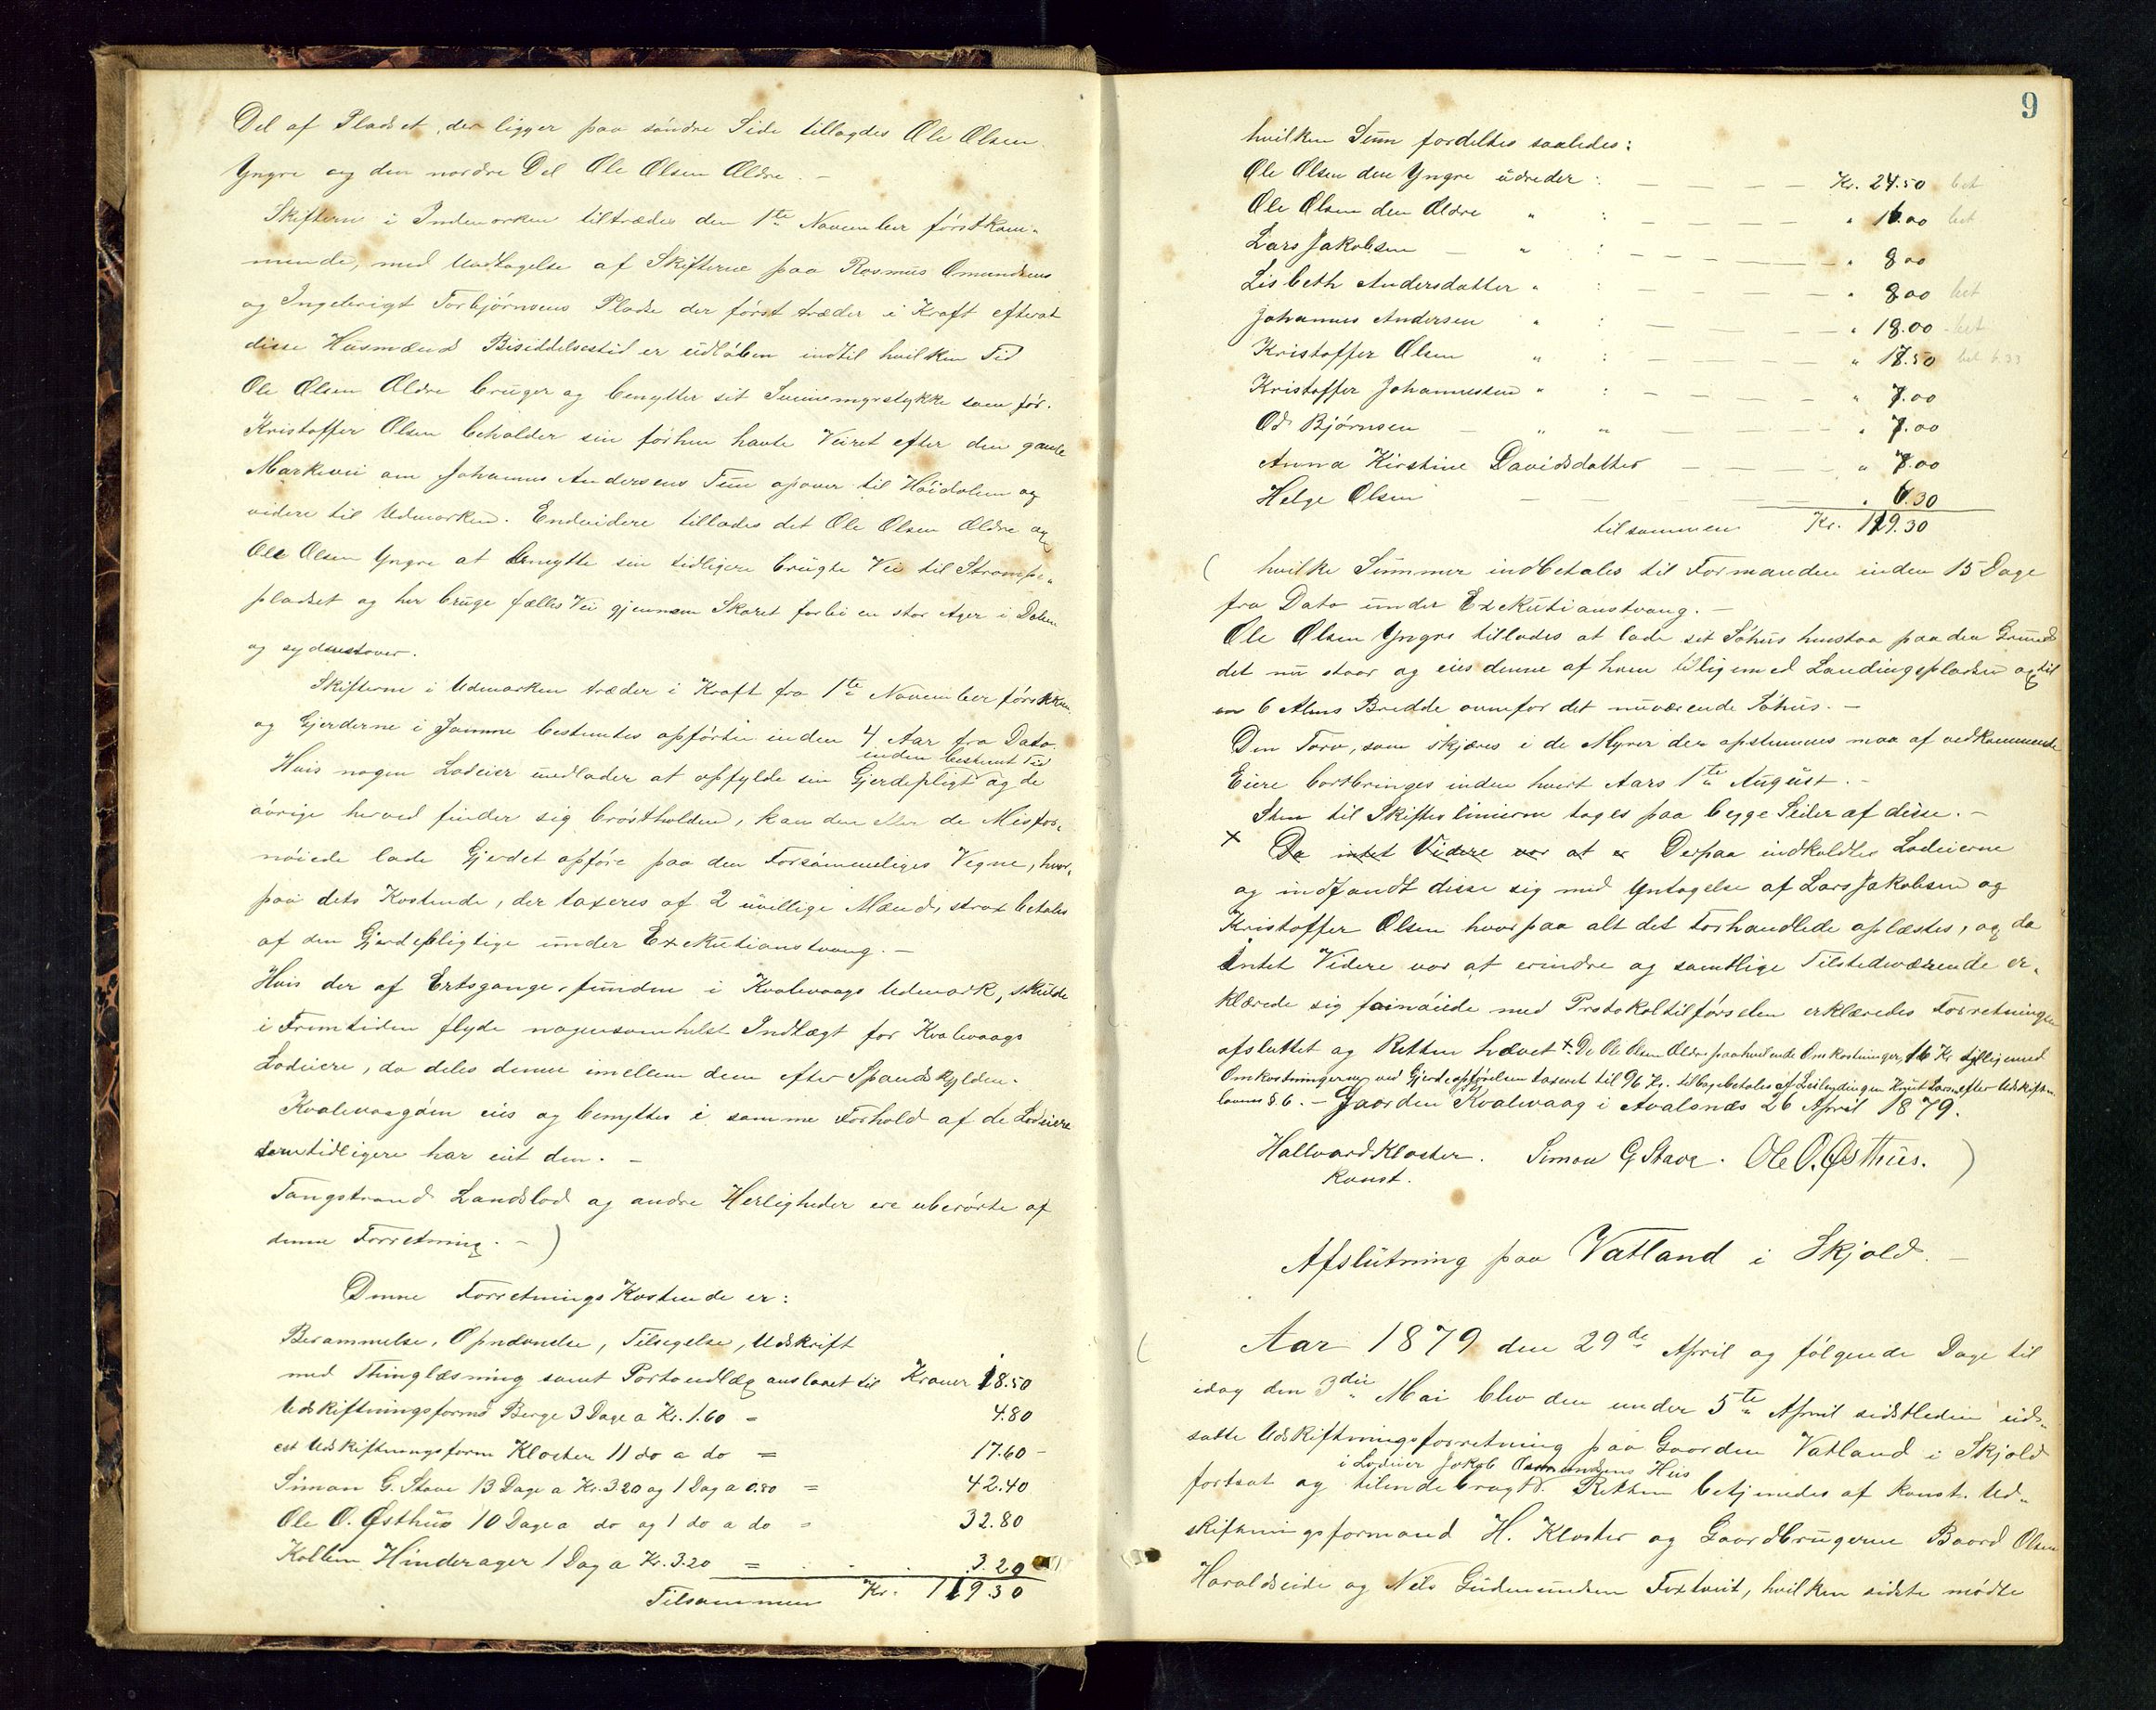 Del af Pladset, der ligger paa söndre Side tillagdes Ole Olsen
Yngre og den nordre Del Ole Olsen Ældre. –
Skifterne i Indmarken tiltrædes den 1te November förstkom-
mende, med Undtagelse af Skifterne paa Rasmus Omundsens
og Ingebrigt Torbjörnsens Pladse der först træder i Kraft efterat
disse Husmænds Besiddelsestid er udlöben indtil hvilken Tid
Ole Olsen Ældre bruger og benytter sit myrstykke som för.
Kristoffer Olsen beholder sin förhen havte Veiret efter den gamle
Markvei om Johannes Andersens Tun opover til Höidalen og
videre til Udmarken. Endvidere tillades det Ole Olsen Ældre og
Ole Olsen Yngre at benytte sin tidligere brugte Vei til Strompe-
pladset og her bruge fælles Vei gjennem Skaret forbi en stor Ager i Dalen
og sydvestover.
Skifterne i Udmarken træder i Kraft fra 1te November förstkom.
og Gjerderne i Samme bestemtes opförte inden 4 Aar fra Dato.
inden bestemt Tid
Hvis nogen Lodeier undlader at opfylde sin Gjerdepligt og de
övrige herved finder sig bröstholden, kan den eller de Misfor-
nöiede lade Gjerdet opföre paa den Forsömmeliges Vegne, hvor-
paa dets Kostende, der taxeres af 2 uvillige Mænd, strax betales
af den Gjerdepligtige under Exekutionstvang. –
Hvis der af Ertsgange, funden i Kvalevaags Udmark, skulde
i Fremtiden flyde nogensomhelst Indtægt for Kvalevaags
Lodeiere, da deles denne imellem dem efter Spandskylden.
Kvalevaagöen eies og benyttes i samme Forhold af de Lodeiere
som tidligere har eiet den. –
Tangstrand Landslod og andre Herligheder ere uberörte af
denne Forretning. – )
Denne Forretnings Kostende er:
Berammelse, Opnævnelse, Tilsigelse, Udskrift
med Thinglæsning samt Portoudlæg anslaaet til Kroner 18.50
Udskiftningsformd Berge 3 Dage a Kr. 1.60 = 4.80
cst Udskiftningsform Kloster 11 do a do = 17.60 –
Simon G. Stave 13 Dage a Kr. 3.20 og 1 Dag a 0.80 = 42.40
Ole O. Østhus 10 Dage a do og 1 do a do = 32.80
Kolben Hinderager 1 Dag a Kr. 3.20 = 3.20
Tilsammen Kr. 119.30
9
hvilken Sum fordeltes saaledes:
Ole Olsen den Yngre udreder : – – – – Kr. 24.50 bet
Ole Olsen den Ældre " : – – – – " 16.00 bet
Lars Jakobsen – " : – – – – " 8.00
Lisbeth Andersdatter " : – – – – " 8.00 bet
Johannes Andersen " : – – – – " 18.00 bet
Kristoffer Olsen " : – – – – " 18.50 bet 6.33
Kristoffer Johannessen " : – – – – " 7.00
Od Björnsen – " " – – – – " 7.00
Anna Kirstine Davidsdatter – – – – " 7.00
Helge Olsen – – – – " 6.30
tilsammen Kr. 119.30
( hvilke Summer indbetales til Formanden inden 15 Dage
fra Dato under Exekutionstvang. –
Ole Olsen Yngre tillades at lade sit Söhus henstaa paa den Grund
det nu staar og eies denne af ham tilligemed Landingspladsen og til
en 6 Alens Bredde ovenfor det nuværende Söhus. –
Den Torv, som skjæres i de Myrer der opstemmes maa af vedkommende
Eiere bortbringes inden hvert Aars 1te August. –
Sten til Skifteslinierne tages paa begge Sider af disse. –
x Da intet Videre var at er Derpaa indkaldtes Lodeierne
og indfandt disse sig med Yntagelse af Lars Jakobsen og
Kristoffer Olsen hvorpaa alt det Forhandlede oplæstes, og da
Intet Videre var at erindre og samtlige Tilstedeværende er-
klærede sig fornöiede med Protokoltilförselen erklæredes Forretningen
afsluttet og Retten hævet x. De Ole Olsen Ældre paahvilende Omkostninger, 16 Kr tilligemed
Omkostningerne ved Gjerdeopförelsen taxeret til 96 Kr. tilbagebetales af Leilendingen Knut Larsen efter Udskiftn.
lovens § 6. – Gaarden Kvalevaag i Avalsnæs 26 April 1879.
Hallvard Kloster. Simon G Stave. Ole O. Østhus. )
Konst.
Afslutning paa Vatland i Skjold. –
( Aar 1879 den 29de April og fölgende Dage til
idag den 3die Mai blev den under 5te April sidstleden ud-
satte Udskiftningsforretning paa Gaarden Vatland i Skjold
i Lodeier Jakob Osmundsens Hus
fortsat og tilendebragt. Retten betjenedes af konst. Ud-
skiftningsformand H. Kloster og Gaardbrugerne Baard Olsen
Haraldseide og Nels Gudmundsen Foxtveit, hvilken sidste mödte